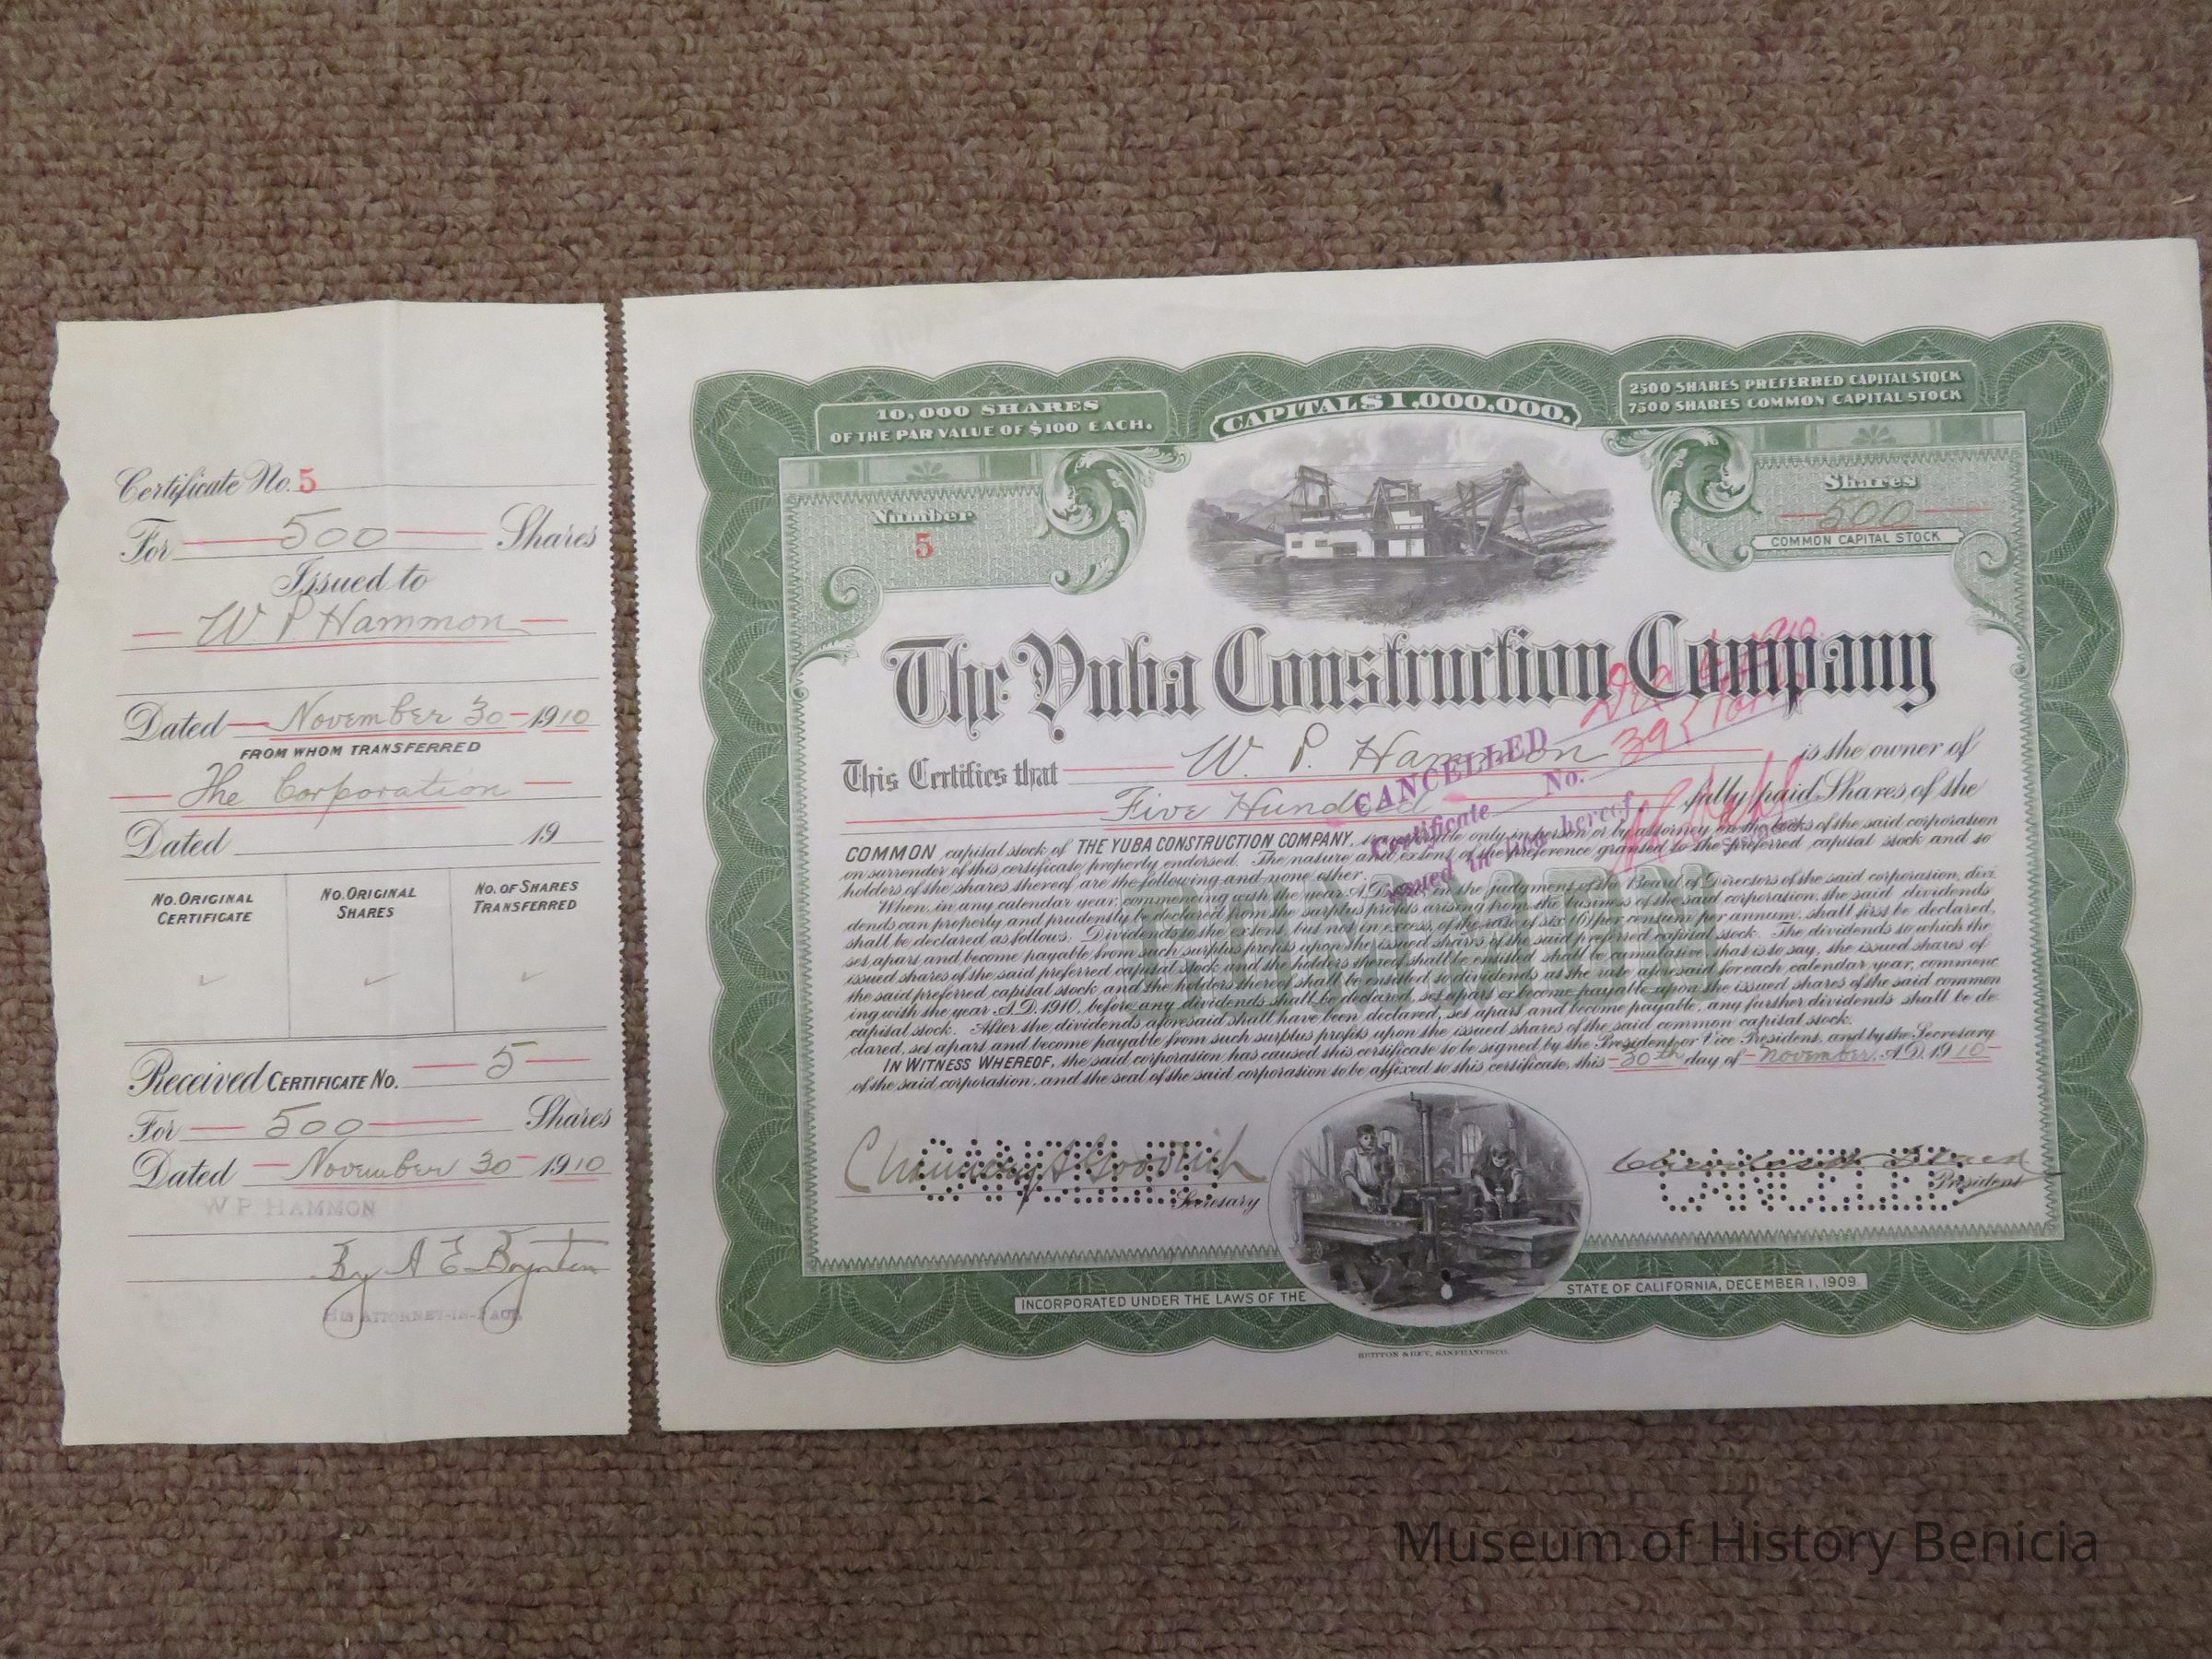 Certificate No. 5
For 500 Shares
Issued to
W. P. Hammon
Dated November 30 1910
FROM WHOM TRANSFERRED
The Corporation
Dated 19
NO. ORIGINAL CERTIFICATE
NO. ORIGINAL SHARES
NO. OF SHARES TRANSFERRED
Received CERTIFICATE NO. 5
For 500 Shares
Dated November 30 1910
W.P. HAMMON
By A E Boynton
HIS ATTORNEY-IN-FACT.
10,000 SHARES
OF THE PAR VALUE OF $100 EACH.
CAPITAL $1,000,000.
2500 SHARES PREFERRED CAPITAL STOCK
7500 SHARES COMMON CAPITAL STOCK
Number
5
Shares
500
COMMON CAPITAL STOCK
The Yuba Construction Company
This Certifies that W. P. Hammon is the owner of
Five Hundred fully paid Shares of the
CANCELLED
Certificate No. 39
issued in lieu hereof
COMMON capital stock of THE YUBA CONSTRUCTION COMPANY, transferable only in person or by attorney on the books of the said corporation
on surrender of this certificate, properly endorsed. The nature and extent of the preference granted to the preferred capital stock and so
holders of the shares thereof are the following and none other.
When, in any calendar year, commencing with the year A.D. 1910, in the judgment of the Board of Directors of the said corporation, divi
dends can properly and prudently be declared from the surplus profits arising from the business of the said corporation, the said dividends
shall be declared as follows. Dividends to the extent, but not in excess, of the rate of six (6) per centum per annum, shall first be declared,
set apart and become payable from such surplus profits upon the issued shares of the said preferred capital stock. The dividends to which the
issued shares of the said preferred capital stock and the holders thereof shall be entitled shall be cumulative, that is to say, the issued shares of
the said preferred capital stock and the holders thereof shall be entitled to dividends at the rate aforesaid for each calendar year, commenc
ing with the year A.D. 1910, before any dividends shall be declared, set apart or become payable upon the issued shares of the said common
capital stock. After the dividends aforesaid shall have been declared, set apart and become payable, any further dividends shall be de
clared, set apart and become payable from such surplus profits upon the issued shares of the said common capital stock.
IN WITNESS WHEREOF, the said corporation has caused this certificate to be signed by the President or Vice President, and by the Secretary
of the said corporation, and the seal of the said corporation to be affixed to this certificate, this 30th day of November A.D. 1910
COMMON
Chauncey A Goodrich
CANCELLED
Secretary
CANCELLED
President
INCORPORATED UNDER THE LAWS OF THE STATE OF CALIFORNIA, DECEMBER 1, 1909.
BRITTON & REY, SAN FRANCISCO.
Museum of History Benicia